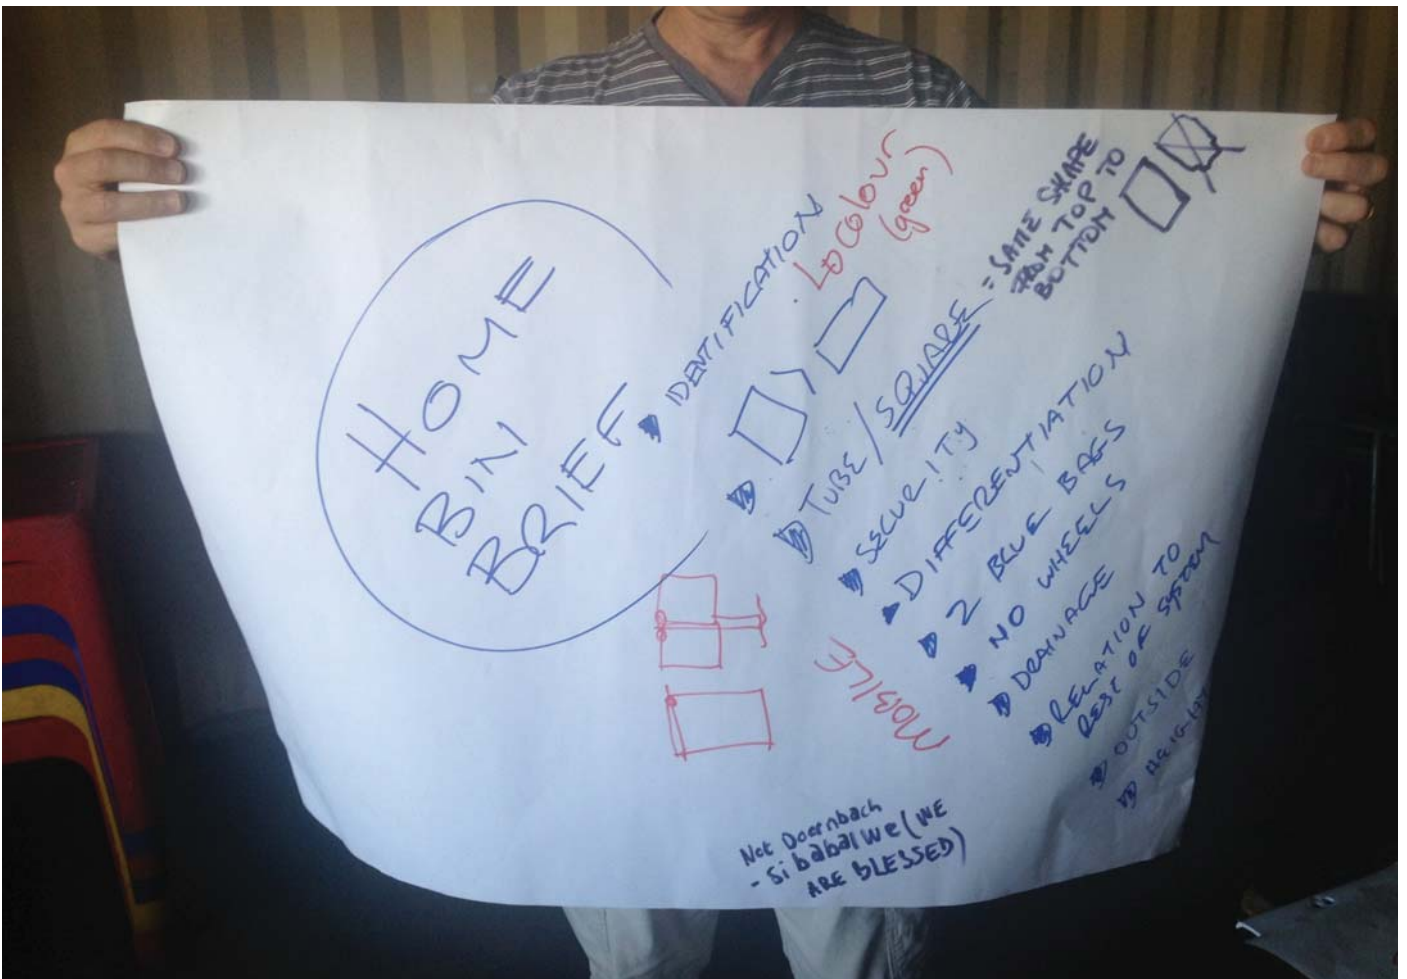 HOME
BIN
BRIEF
IDENTIFICATION
COLOUR
(green)
TUBE/SQUARE = SAME SHAPE
FROM TOP TO
BOTTOM
SECURITY
DIFFERENTIATION
2 BLUE BAGS
NO WHEELS
DRAINAGE
RELATION TO
REST OF SYSTEM
OUTSIDE
HEIGHT
MOBILE
Not Doornbach
- Sibabalwe (WE
ARE BLESSED)